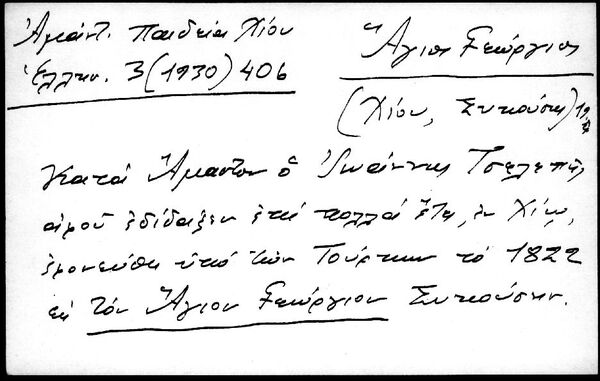 Ἀμάντ. Παιδεία Χίου
Ἑλλην. 3(1930) 406
Ἅγιος Γεώργιος
(Χίου, Συκούσης) 19
Κατά Ἄμαντον ὁ Ἰωάννης Τσελεπῆς
ἀφοῦ ἐδίδαξεν ἐπί πολλά ἔτη ἐν Χίῳ,
ἐφονεύθη ὑπό τῶν Τούρκων τό 1822
εἰς τόν Ἅγιον Γεώργιον Συκούσην.